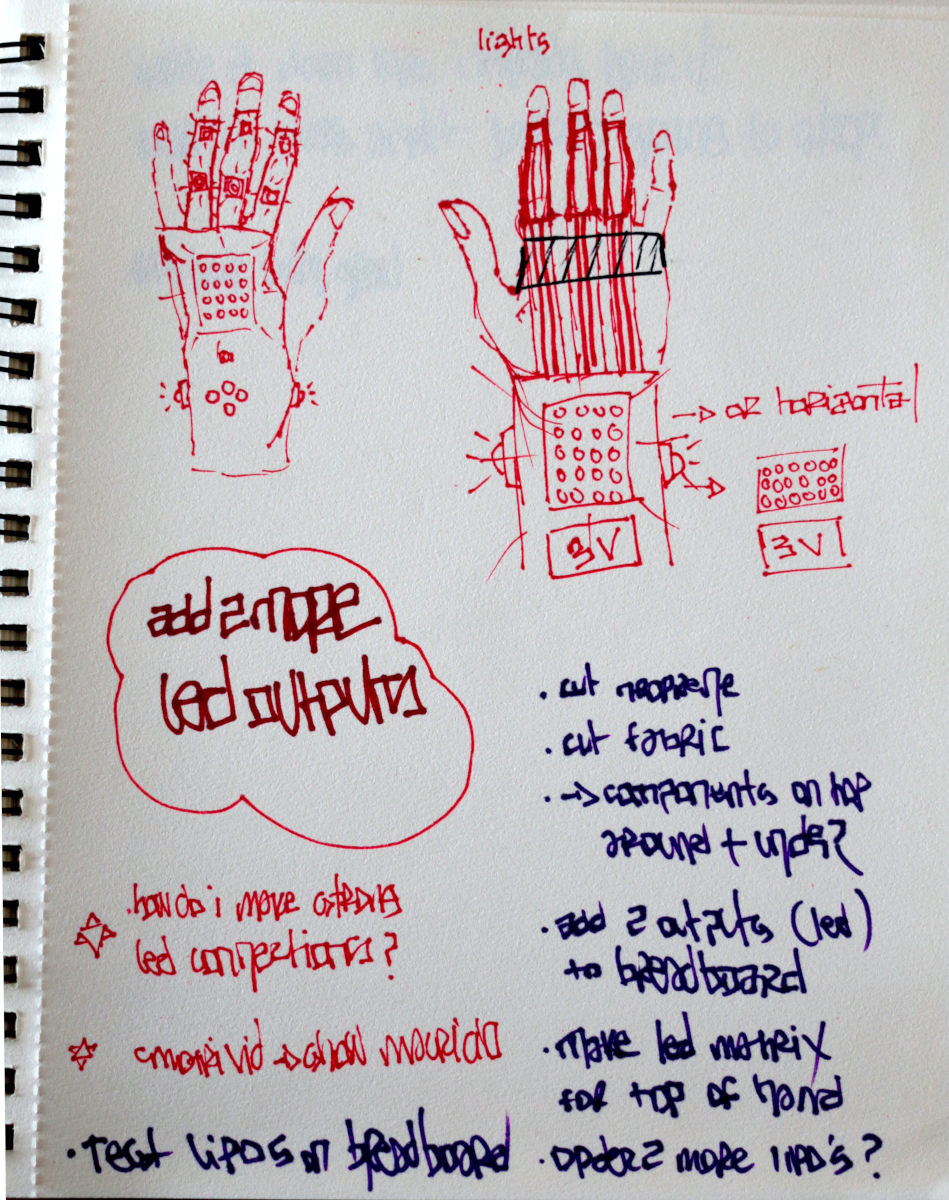 lights
→ or horizontal
3V
3V
add 2 more
led outputs
• cut neoprene
• cut fabric
• → components on top
around + under?
• how do i make strong
led connections?
• add 2 outputs (led)
to breadboard
→ show
• make led matrix
for top of hand
• Test LiPOs on breadboard
• order 2 more lipo's?